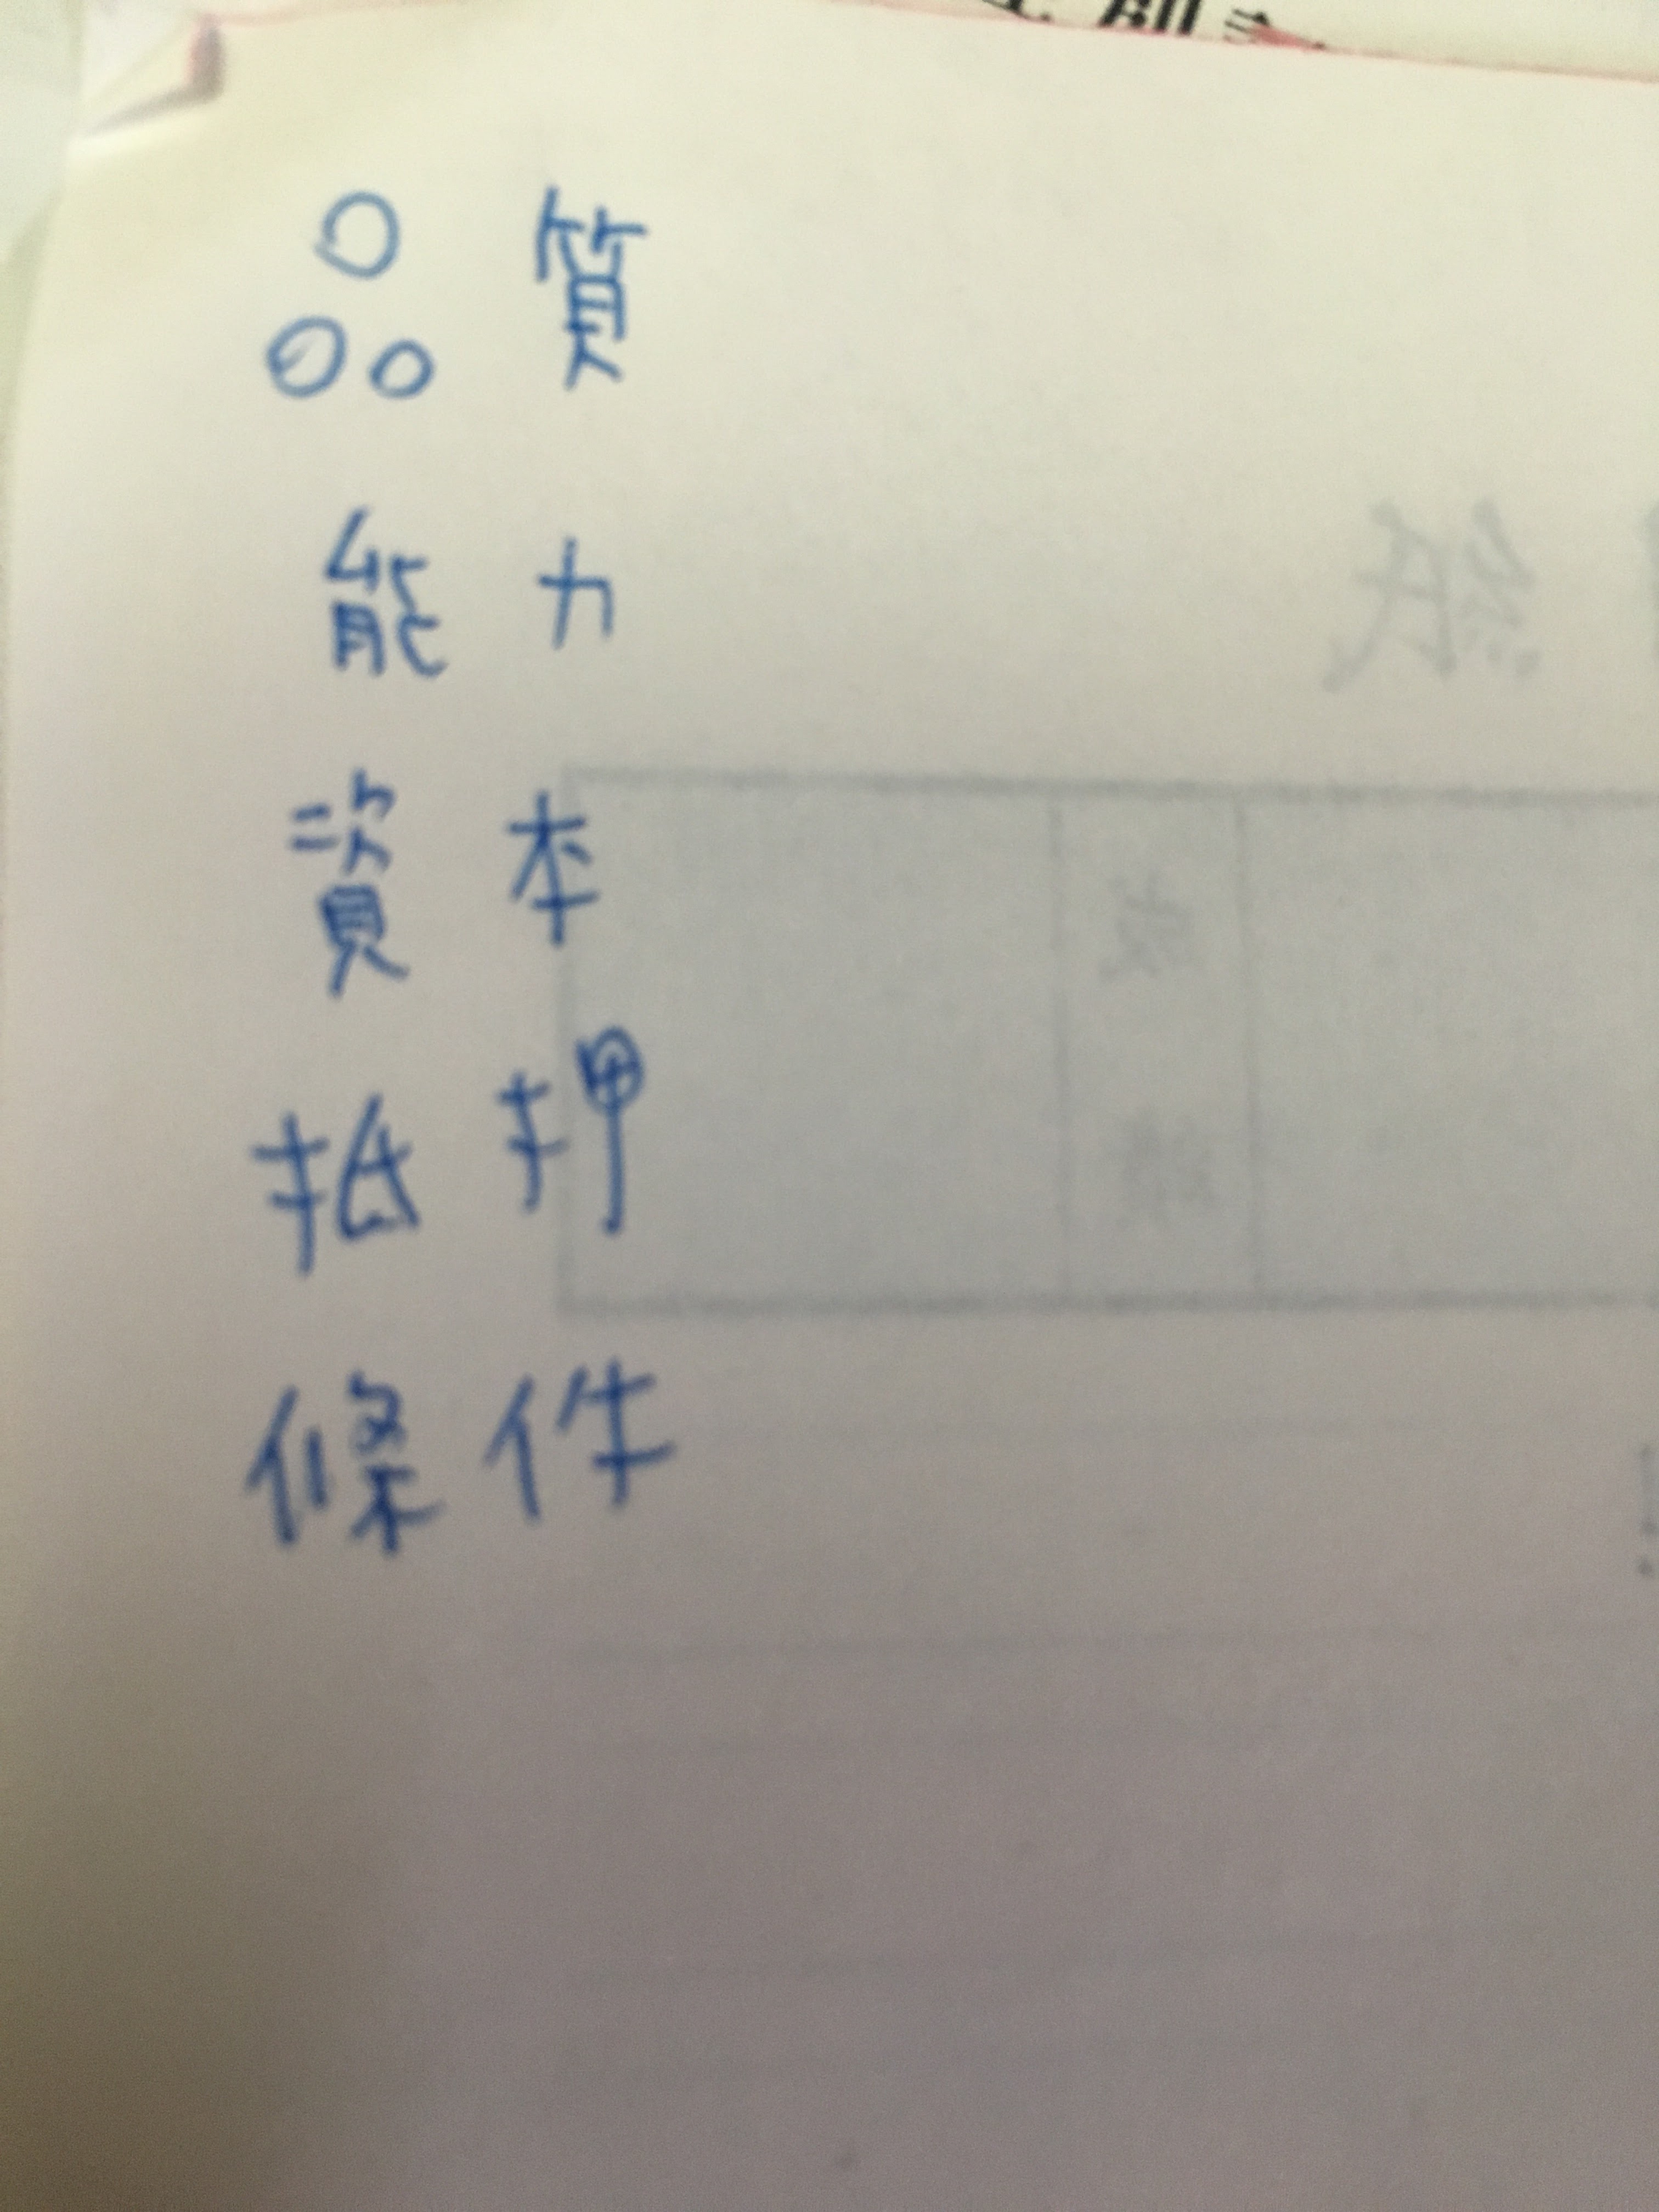 品質
能力
資本
抵押
條件
紙